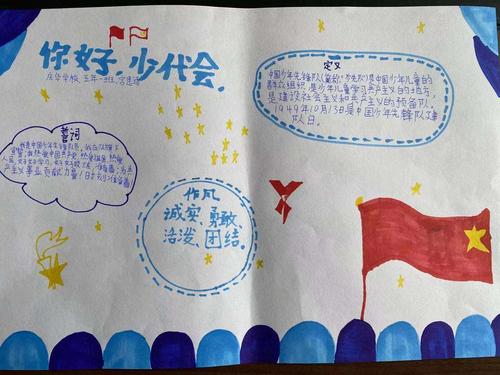 你好,少代会.
五年一班
定义
中国少年先锋队(简称"少先队)是中国少年儿童的
群众组织是少年儿童学习共产主义的地方,
是建设社会主义和共产主义的预备队。
1949年10月13日是中国少年先锋队建
队日。
誓词
我是中国少年先锋队队员,我在队旗下
宣誓:我热爱中国共产党,热爱祖国,热爱
人民,好好学习,好好锻炼,准备着:为共
产主义事业贡献力量!时刻准备着
作风
诚实、勇敢、
活泼、团结.